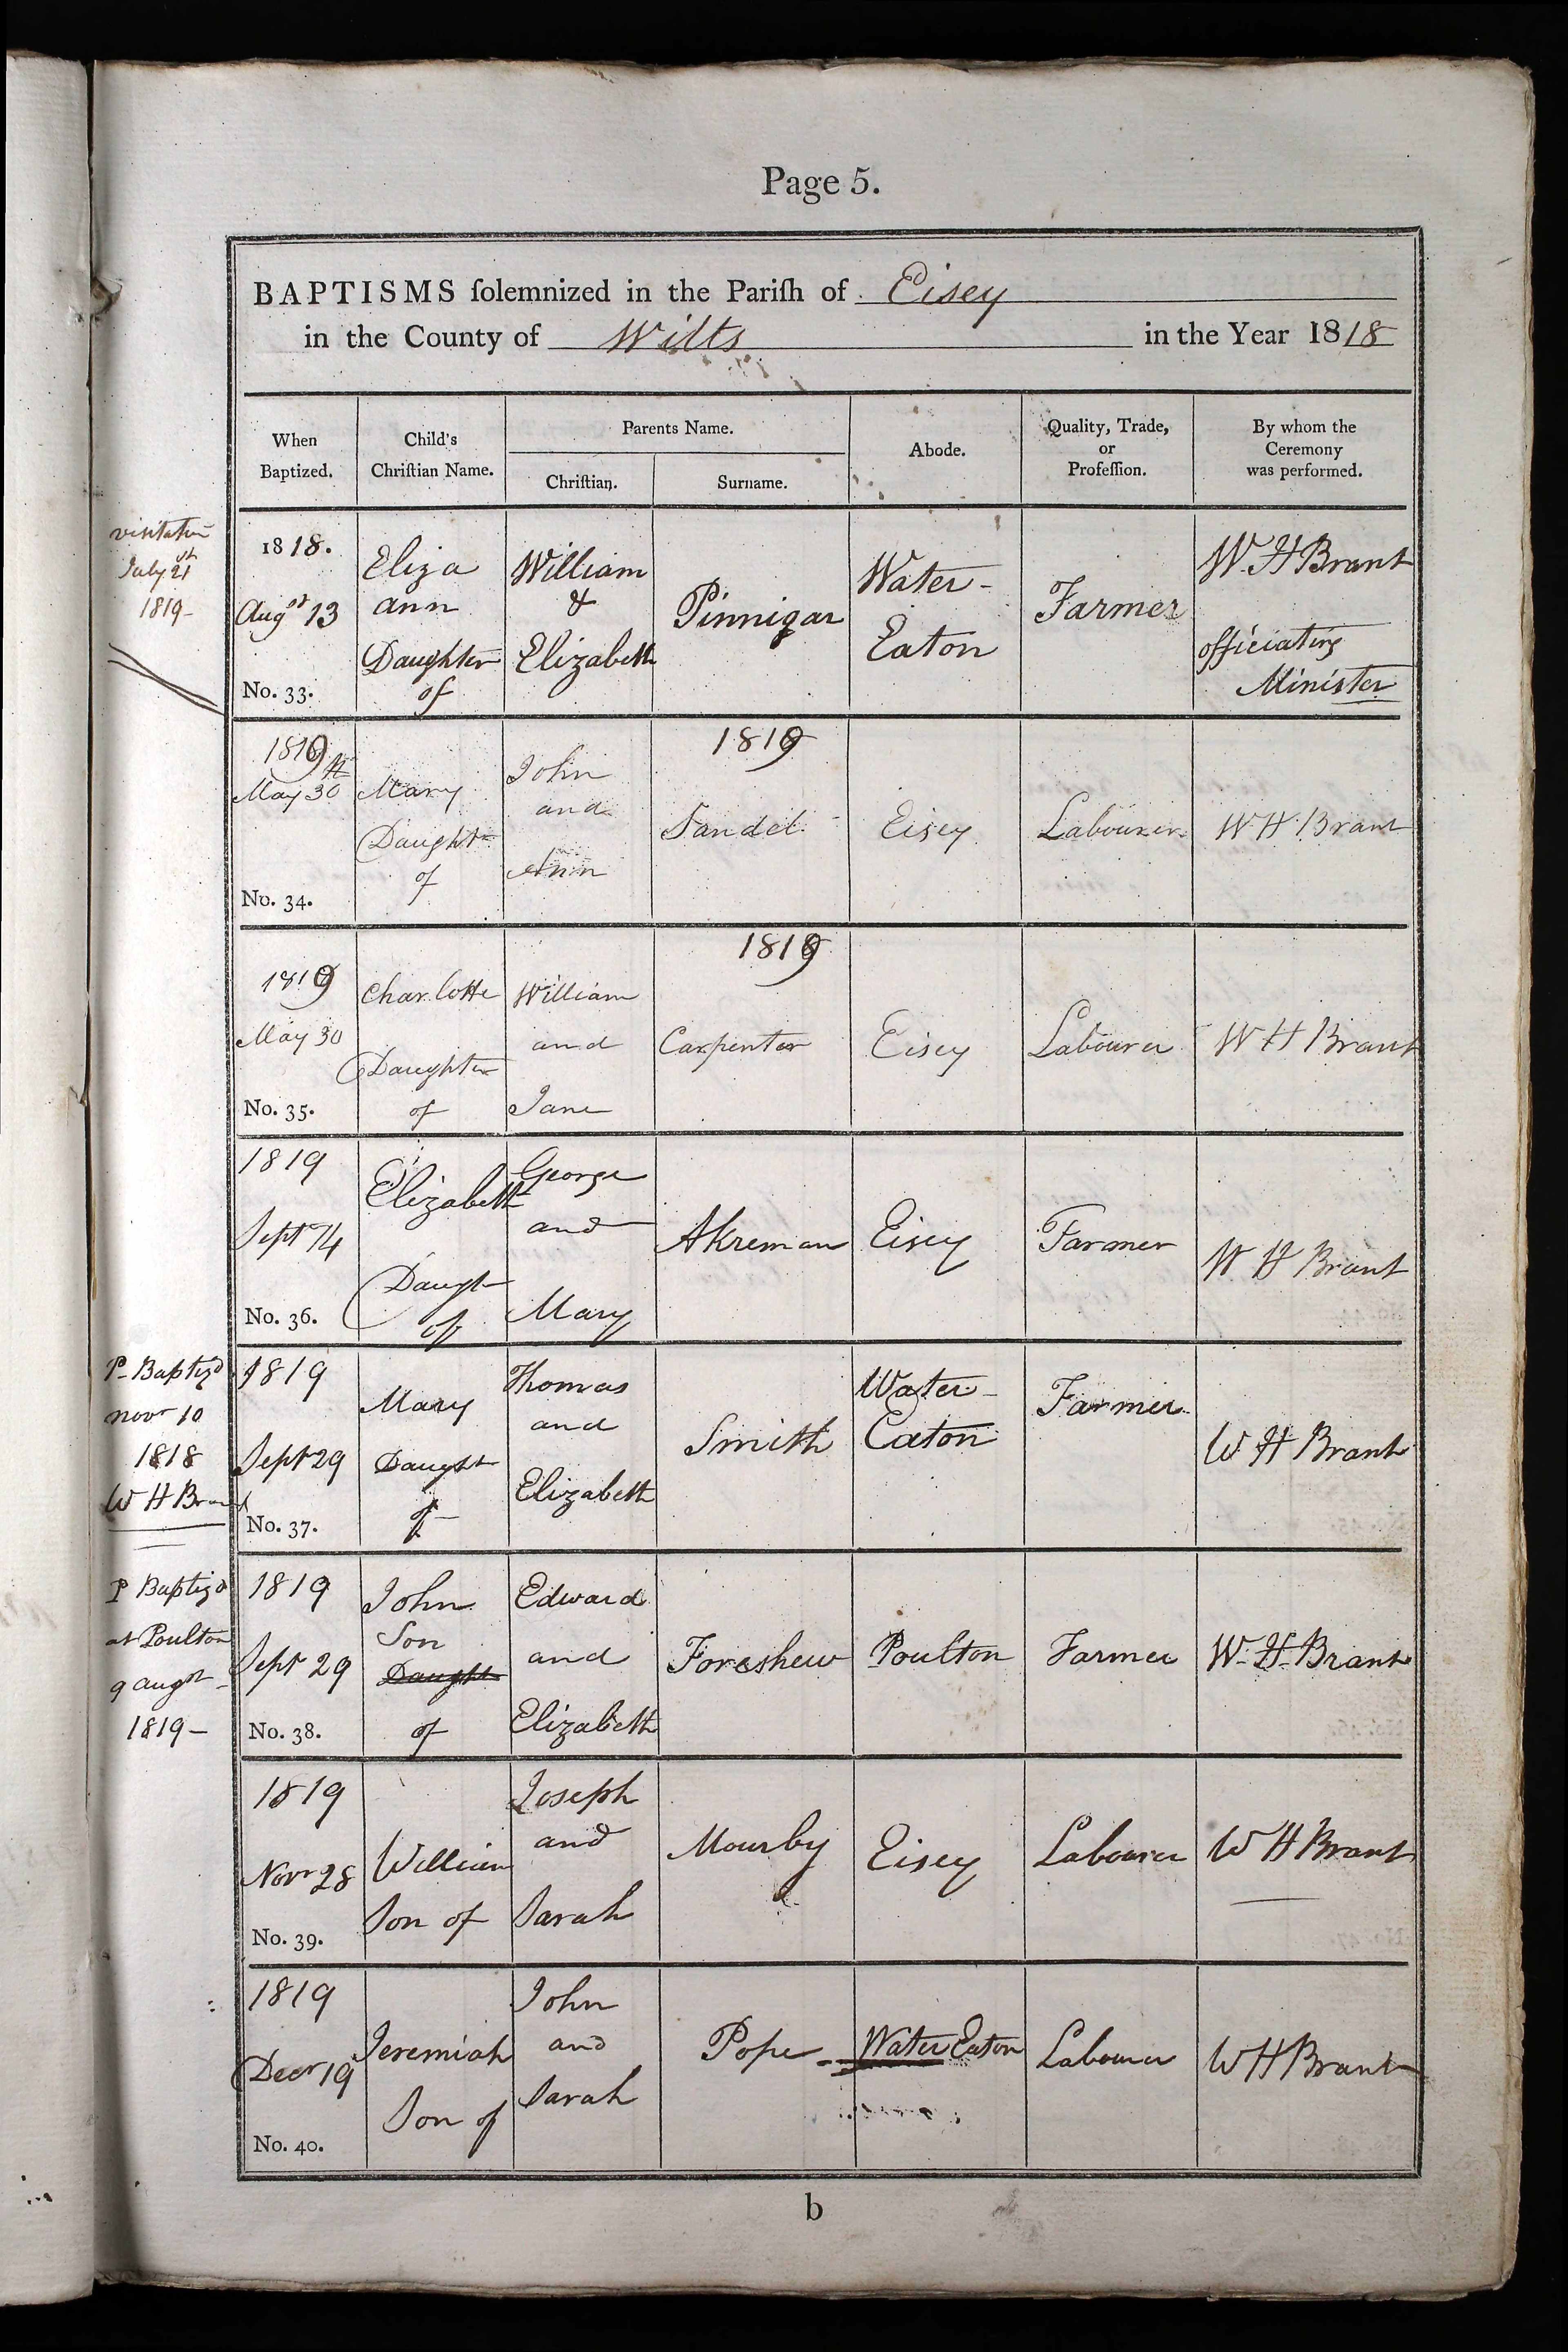 Page 5.
BAPTISMS ſolemnized in the Pariſh of Eisey
in the County of Wilts in the Year 1818
When
Baptized.
Child's
Chriſtian Name.
Parents Name.
Chriſtian.
Surname.
Abode.
Quality, Trade,
or
Profeſſion.
By whom the
Ceremony
was performed.
visitatn
July 21st
1819-
1818.
Augst 13
No. 33.
Eliza
ann
Daughter
of
William
&
Elizabeth
Pinnigar
Water-
Eaton
Farmer
W. H Brant
officiating
Minister
1819
May 30th
No. 34.
Mary
Daughtr
of
John
and
Ann
1819
Sandel
Eisey
Labourer
W H Brant
1819
May 30
No. 35.
Charlotte
Daughter
of
William
and
Jane
1819
Carpenter
Eisey
Labourer
W H Brant
1819
Sept 14
No. 36.
Elizabeth
Daught
of
George
and
Mary
Akreman
Eisey
Farmer
W H Brant
P- Baptizd
novr 10
1818
W H Brant
1819
Sept 29
No. 37.
Mary
Daught
of
Thomas
and
Elizabeth
Smith
Water-
Eaton
Farmer
W H Brant
P Baptizd
at Poulton
9 augst
1819-
1819
Sept 29
No. 38.
John
Son
Daught
of
Edward
and
Elizabeth
Foreshew
Poulton
Farmer
W. H. Brant
1819
Novr 28
No. 39.
William
Son of
Joseph
and
Sarah
Mourby
Eisey
Labourer
W H Brant
1819
Decr 19
No. 40.
Jeremiah
Son of
John
and
Sarah
Pope
Water Eaton
Labourer
W H Brant
b